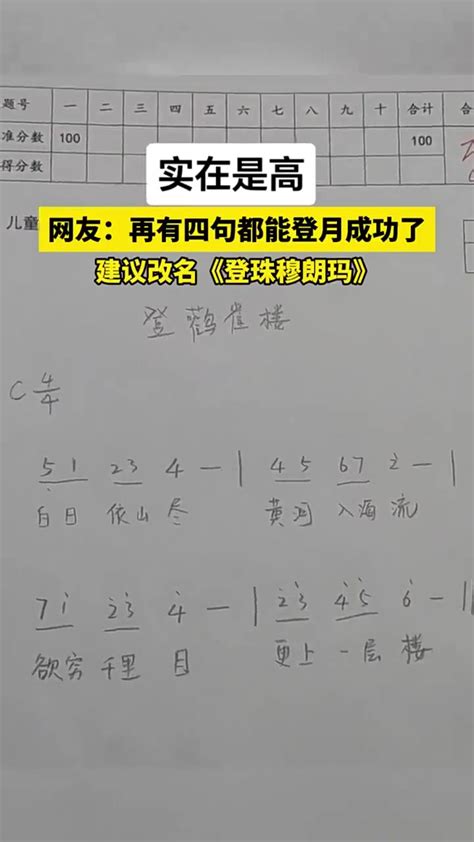 题号 一 二 三 四 五 六 七 八 九 十 合计
准分数 100 100
得分数
实在是高
儿童
网友：再有四句都能登月成功了
建议改名《登珠穆朗玛》
登鹳雀楼
C 4/4
5̣ 1 2 3 4 — | 4 5 6 7 2̇ — |
白日 依山 尽 黄河 入海 流
7 1̇ 2̇ 3̇ 4̇ — | 2̇ 3̇ 4̇ 5̇ 6̇ — |
欲穷 千里 目 更上 一层 楼